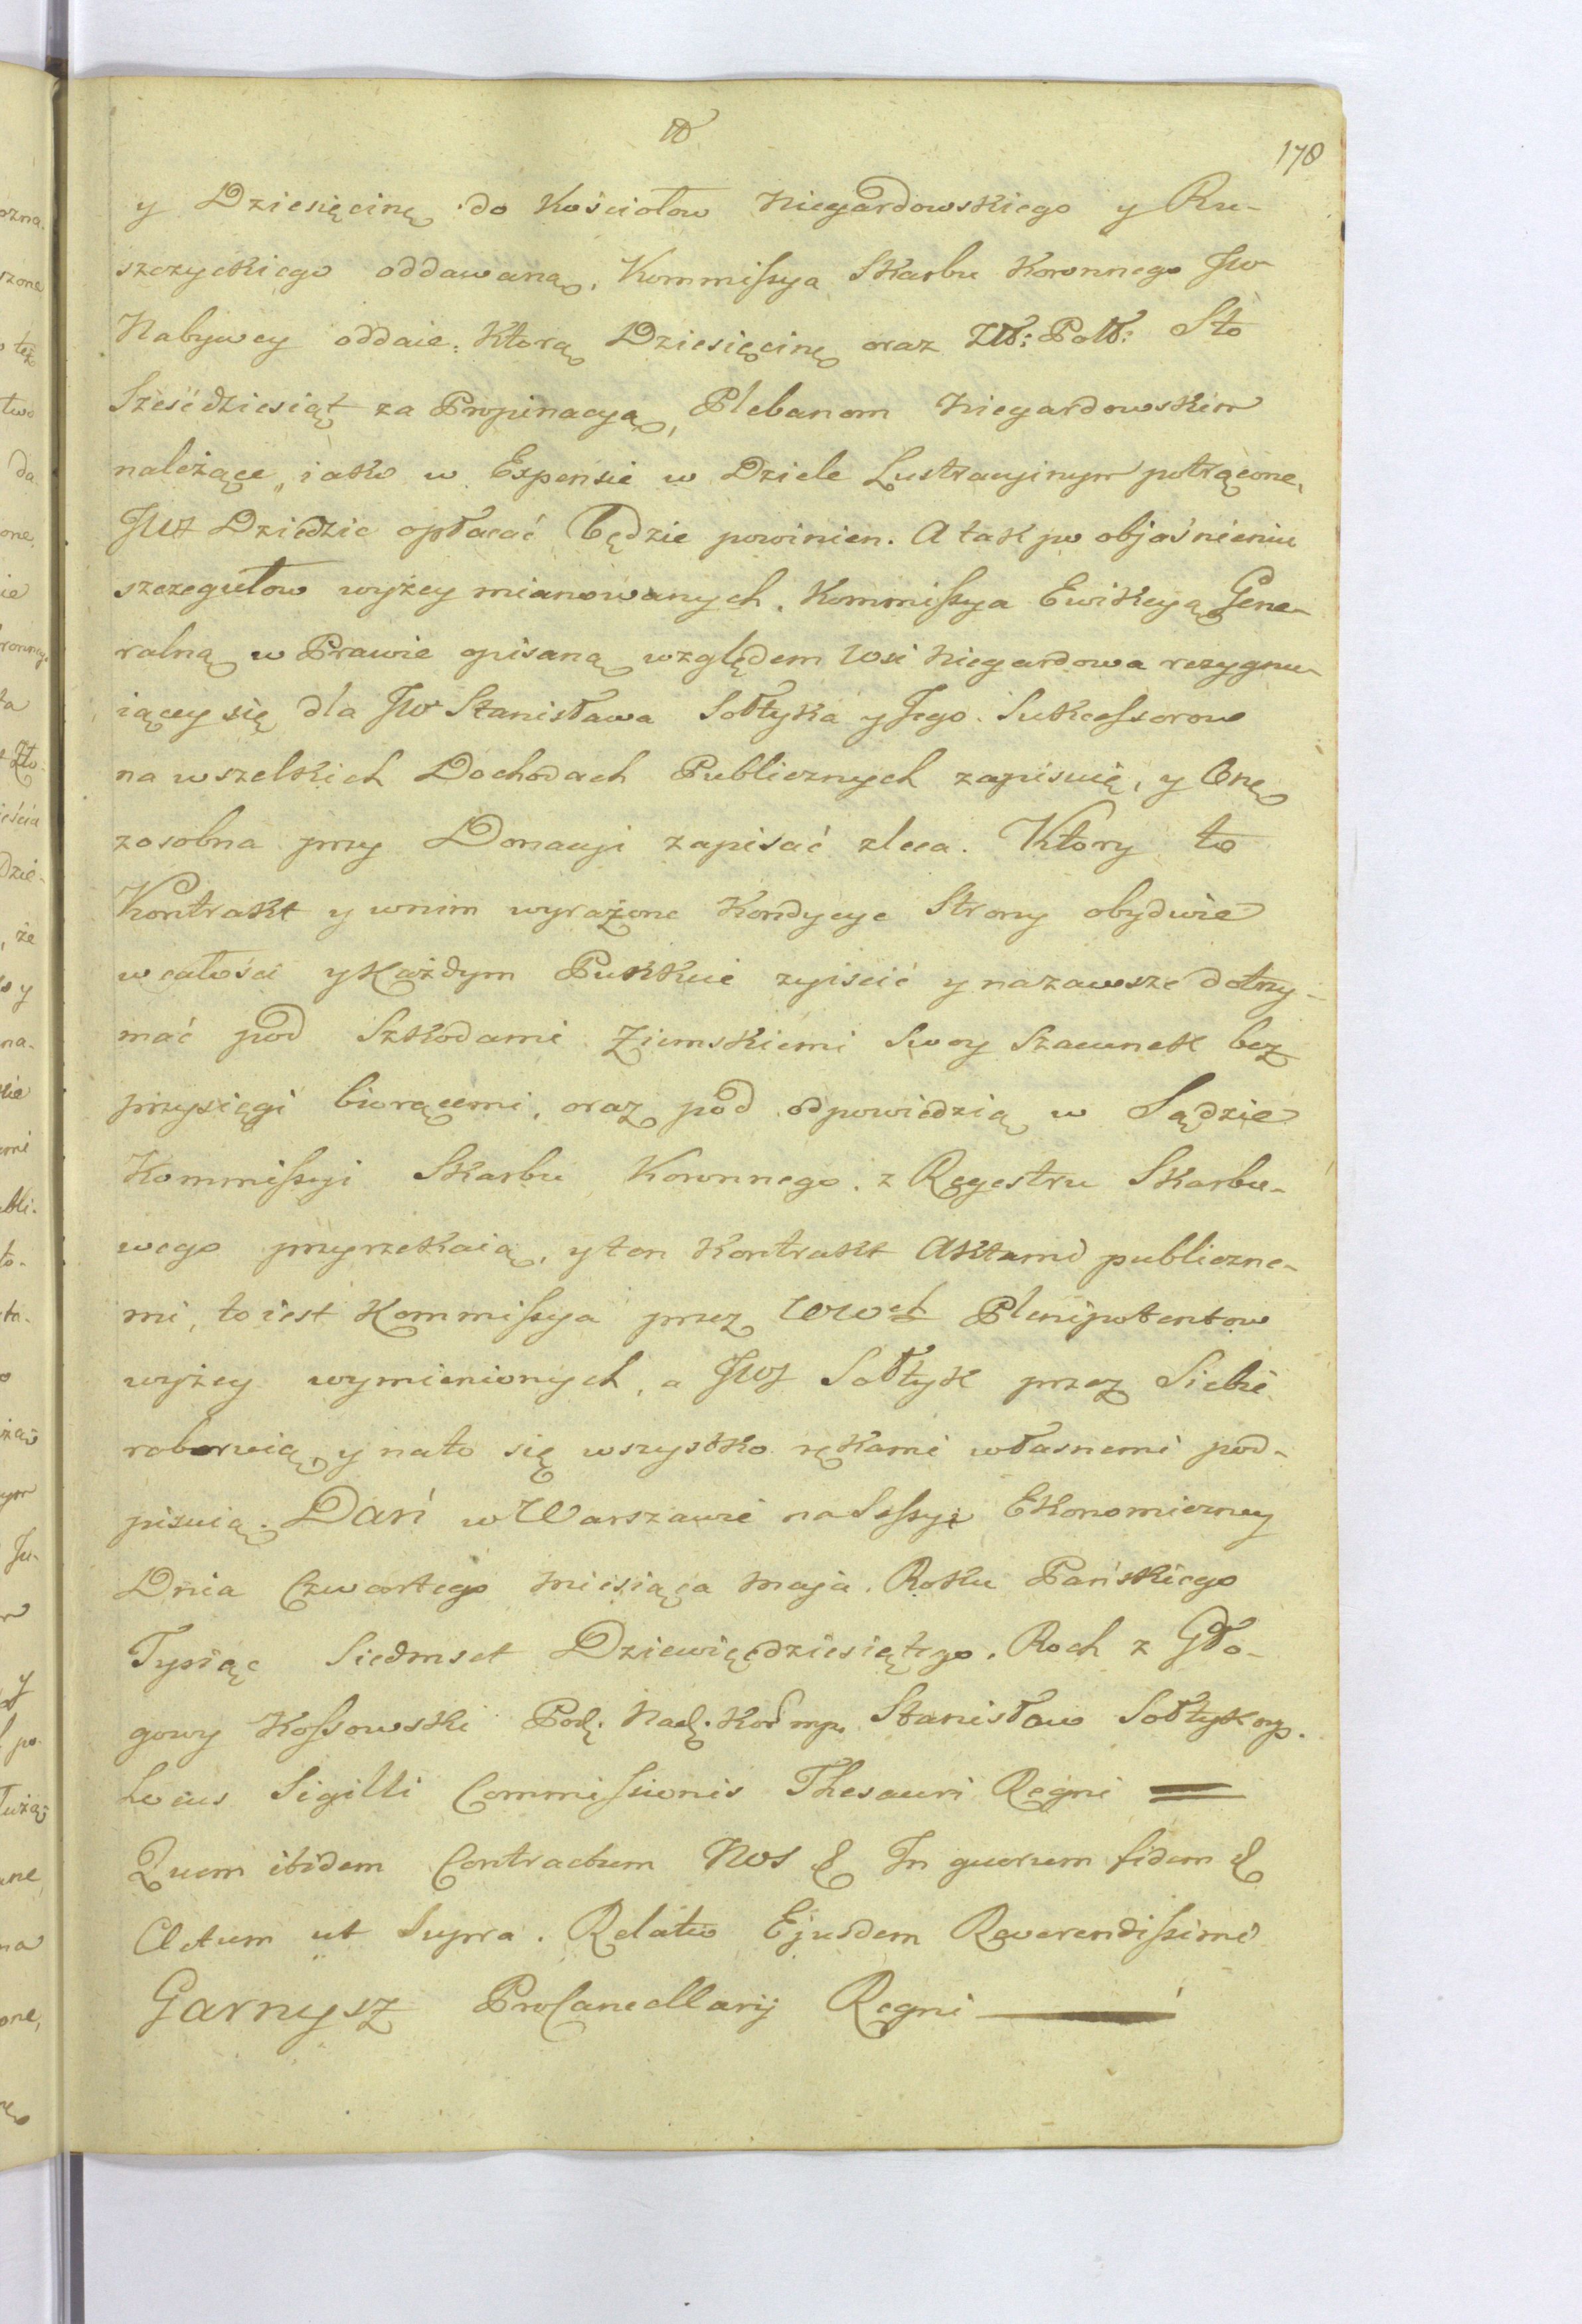 178
y Dziesięcinę do Kościołow Niegardowskiego y Ru-
szczyckiego oddawaną, Kommissya Skarbu Koronnego JW
Nabywcy oddaie: Ktorą Dziesięcinę oraz Złł: Poll: Sto
Sześćdziesiąt za Propinacyą, Plebanom Niegardowskim
należące, iako w Expensie w Dziele Lustracyinym potrącone,
JWJ Dziedzic opłacać będzie powinien. A tak po objaśnieniu
szczegułow wyżey mianowanych, Kommissya Ewikcyą Gene-
ralną w Prawie opisaną względem Wsi Niegardowa rezygnu-
iącey się dla JW Stanisława Sołtyka y Jego Sukcessorow
na wszelkich Dochodach Publicznych zapisuię, y Onę
zosobna przy Donacyi zapisać zleca. Ktory to
Kontrakt y wnim wyrażone Kondycye Strony obydwie
wcałości y Każdym Punkcie zyiscić y nazawsze dotrzy-
mać pod Szkodami Ziemskiemi Swoy Szacunek bez
przysięgi biorącemi, oraz pod odpowiedzią w Sądzie
Kommissyi Skarbu Koronnego z Regestru Skarbo-
wego przyrzekaią, y ten Kontrakt Aktami publiczne-
mi, to iest Kommissya przez WWch Plenipotentow
wyżey wymienionych, a JWJ Sołtyk przez Siebie
roboruią, y nato się wszystko rękami własnemi pod-
pisuią. Dań w Warszawie na Sessyi Ekonomiczney
Dnia Czwartego Miesiąca Maja Roku Pańskiego
Tysiąc Siedmset Dziewięćdziesiątego. Roch z Gło-
gowy Kossowski Pod: Nad: Kor mp. Stanisław Sołtyk mp.
Locus Sigilli Commissionis Thesauri Regni
Quem ibidem Contractum Nos & In quorum fidem &
Actum ut Supra. Relatio Ejusdem Reverendissimi
Garnysz ProCancellarij Regni